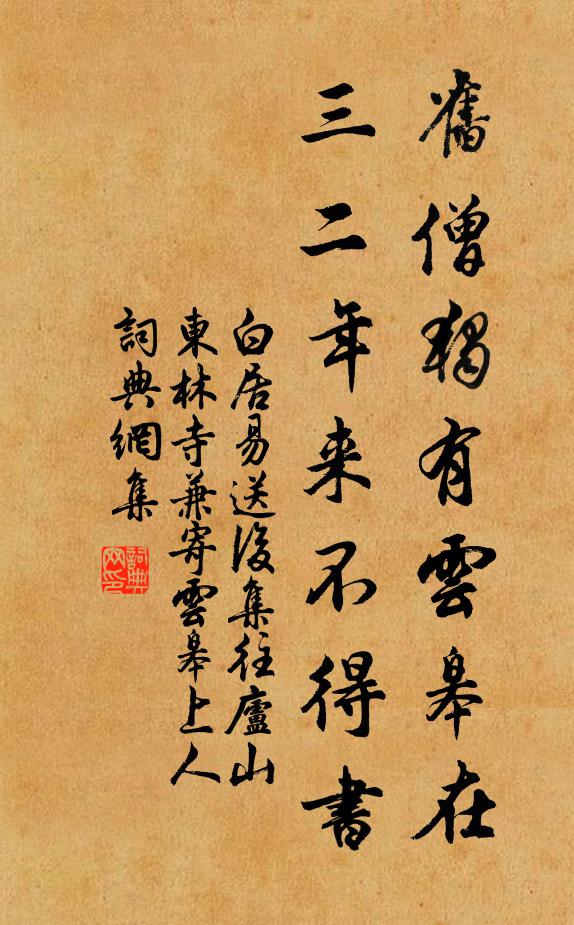 舊僧獨有雲皋在
三二年来不得書
白居易送後集往廬山
東林寺兼寄雲皋上人
詞典網集
詞典网印